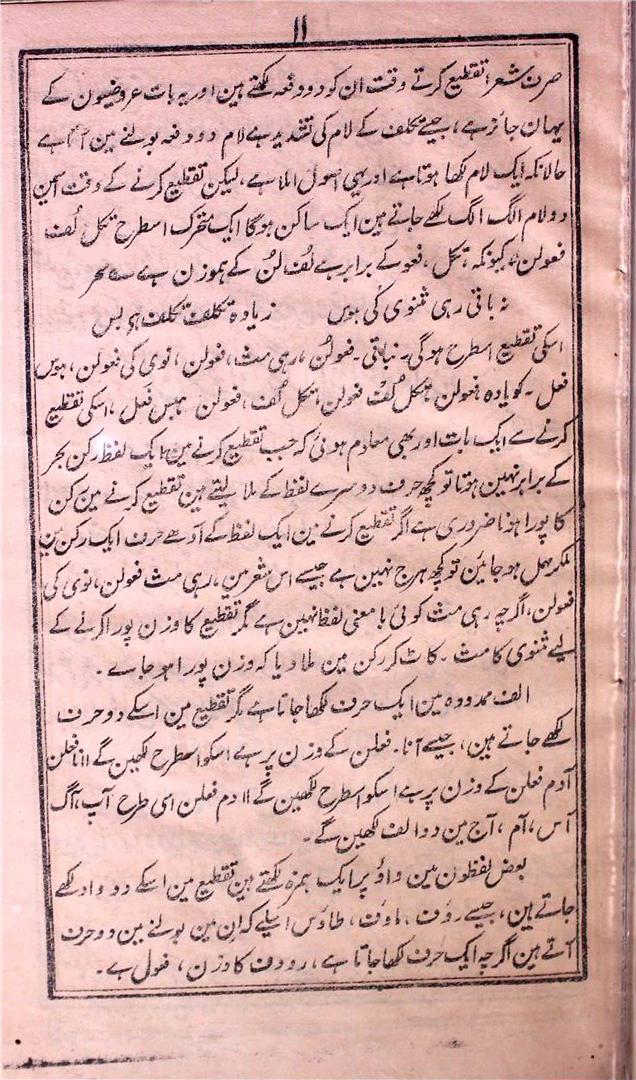 ۱۱
صرف شعر تقطیع کرتے وقت ان کو دو دفعہ لکھتے ہین اور یہ بات عروضیون کے
یہان جائز ہے، جیسے تکلف کے لام کی تشدید ہے لام دو دفعہ بولنے مین آتا ہے
حالانکہ ایک لام لکھا ہوتا ہے اور یہی اصول املا ہے، لیکن تقطیع کرنے کے وقت اسمین
دو لام الگ الگ لکھے جاتے ہین ایک ساکن ہوگا ایک متحرک اسطرح تکل لُف
فعولن، کیونکہ تکل، فعو کے برابر ہے لُف لُن کے ہموزن ہے
نہ باقی رہی مثنوی کی ہوس زیادہ تکلف تکلف ہی بس
اسکی تقطیع اسطرح ہوگی۔ نباقی۔ فعولُن، رہی مث، فعولن، نوی کی فعولن، ہوس
فعل۔ یادہ فعولن تکل لُف فعولن، تکل لُف، فعولن ہبس فَعل، اسکی تقطیع
کرنے سے ایک بات اور بھی معلوم ہوئی کہ جب تقطیع کرنے مین ایک لفظ رکن بحر
کے برابر نہین ہوتا تو کچھ حرف دوسرے لفظ کے ملا لیتے ہین تقطیع کرنے مین رکن
کا پورا ہونا ضروری ہے اگر تقطیع کرنے مین ایک لفظ کے آدھے حرف ایک رکن مین
ملکر مہمل ہو جائین تو کچھ ہرج نہین ہے جیسے اس شعر مین، رہی مث فعولن، نوی کی
فعولن، اگرچہ رہی مث کوئی بامعنی لفظ نہین ہے مگر تقطیع کا وزن پورا کرنے کے
لیے مثنوی کا مث۔ کاٹ کر رکن مین ملا دیا کہ وزن پورا ہو جاے۔
الف ممدودہ مین ایک حرف لکھا جاتا ہے مگر تقطیع مین اسکے دو حرف
لکھے جاتے ہین، جیسے آنا۔ فعلن کے وزن پر ہے اسکو اسطرح لکھین گے اانا فعلن
آدم فعلن کے وزن پر ہے اسکو اسطرح لکھین گے اادم فعلن اسی طرح آپ، آگ
آس، آم، آج مین دو الف لکھین گے۔
بعض لفظون مین واؤ پر ایک ہمزہ لکھتے ہین تقطیع مین اسکے دو واو لکھے
جاتے ہین، جیسے رؤف، طاؤس اسلیے کہ ان مین بولنے مین دو حرف
آتے ہین اگرچہ ایک حرف لکھا جاتا ہے، رووف کا وزن، فعول ہے۔